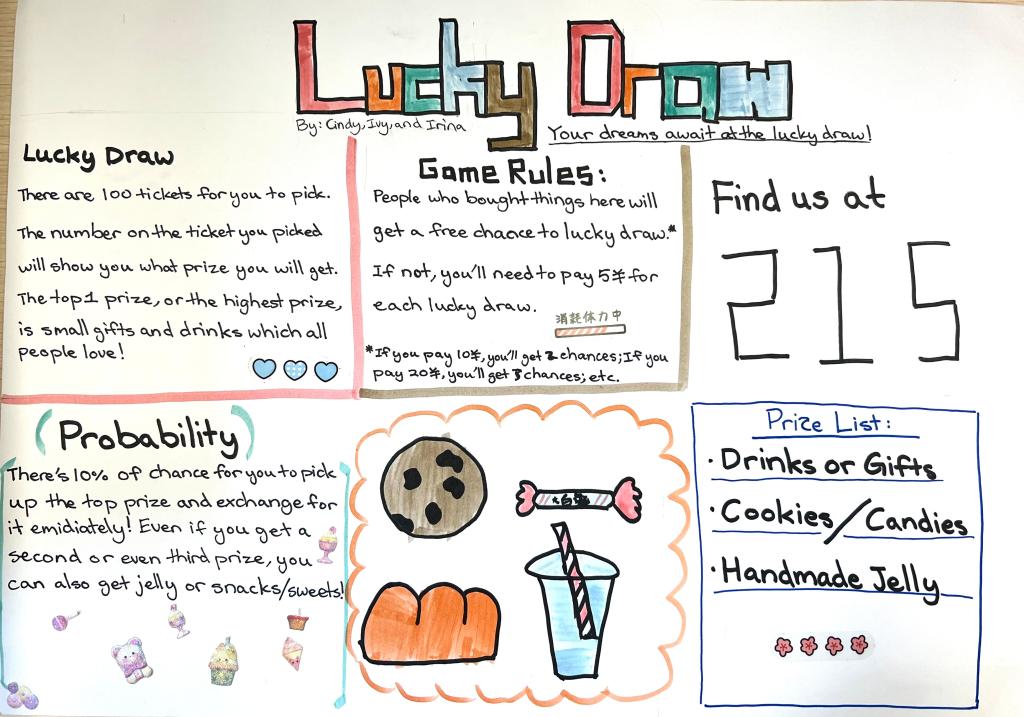 Lucky Draw
By: Cindy, Ivy, and Irina
Your dreams await at the lucky draw!
Lucky Draw
There are 100 tickets for you to pick.
The number on the ticket you picked
will show you what prize you will get.
The top 1 prize, or the highest prize,
is small gifts and drinks which all
people love!
Game Rules:
People who bought things here will
get a free chance to lucky draw.*
If not, you'll need to pay 5羊 for
each lucky draw.
消耗体力中
*If you pay 10羊, you'll get 2 chances; If you
pay 20羊, you'll get 3 chances; etc.
Find us at
215
(Probability)
There's 10% of chance for you to pick
up the top prize and exchange for
it emidiately! Even if you get a
second or even third prize, you
can also get jelly or snacks/sweets!
Prize List:
· Drinks or Gifts
· Cookies/Candies
· Handmade Jelly